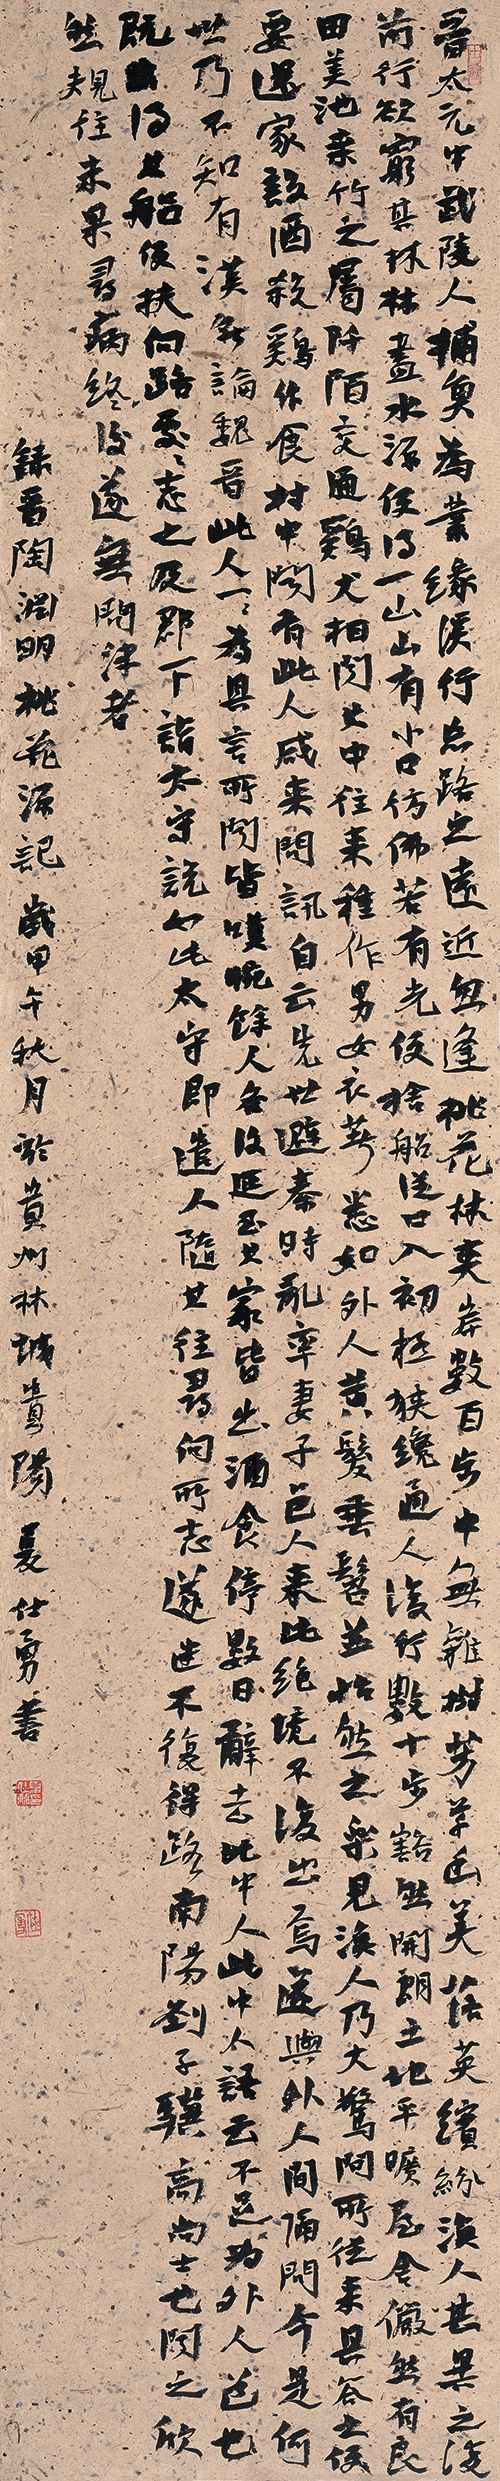 晋太元中武陵人捕魚為業缘溪行忘路之遠近忽逢桃花林夹岸數百步中無雜樹芳草鮮美落英繽紛漁人甚異之復
前行欲窮其林林盡水源便得一山山有小口仿佛若有光便捨船從口入初極狭纔通人復行數十步豁然開朗土地平曠屋舍儼然有良
田美池桑竹之屬阡陌交通鷄犬相聞其中往來種作男女衣著悉如外人黄髮垂髫並怡然之樂見漁人乃大驚問所從來具答之便
要還家設酒殺鷄作食村中聞有此人咸來問訊自云先世避秦時亂率妻子邑人來此绝境不復出焉遂與外人間隔問今是何
世乃不知有漢無論魏晋此人一一為具言所聞皆嘆惋餘人各復延至其家皆出酒食停數日辭去此中人此中人語云不足為外人道也
既出得其船便扶向路處處志之及郡下詣太守説如此太守即遣人隨其往尋向所志遂迷不復得路南陽劉子驥高尚士也聞之欣
然規往未果尋病終後遂無問津者
録晋陶渊明桃花源記 歲甲午秋月於貴州林城貴陽 夏仕勇書